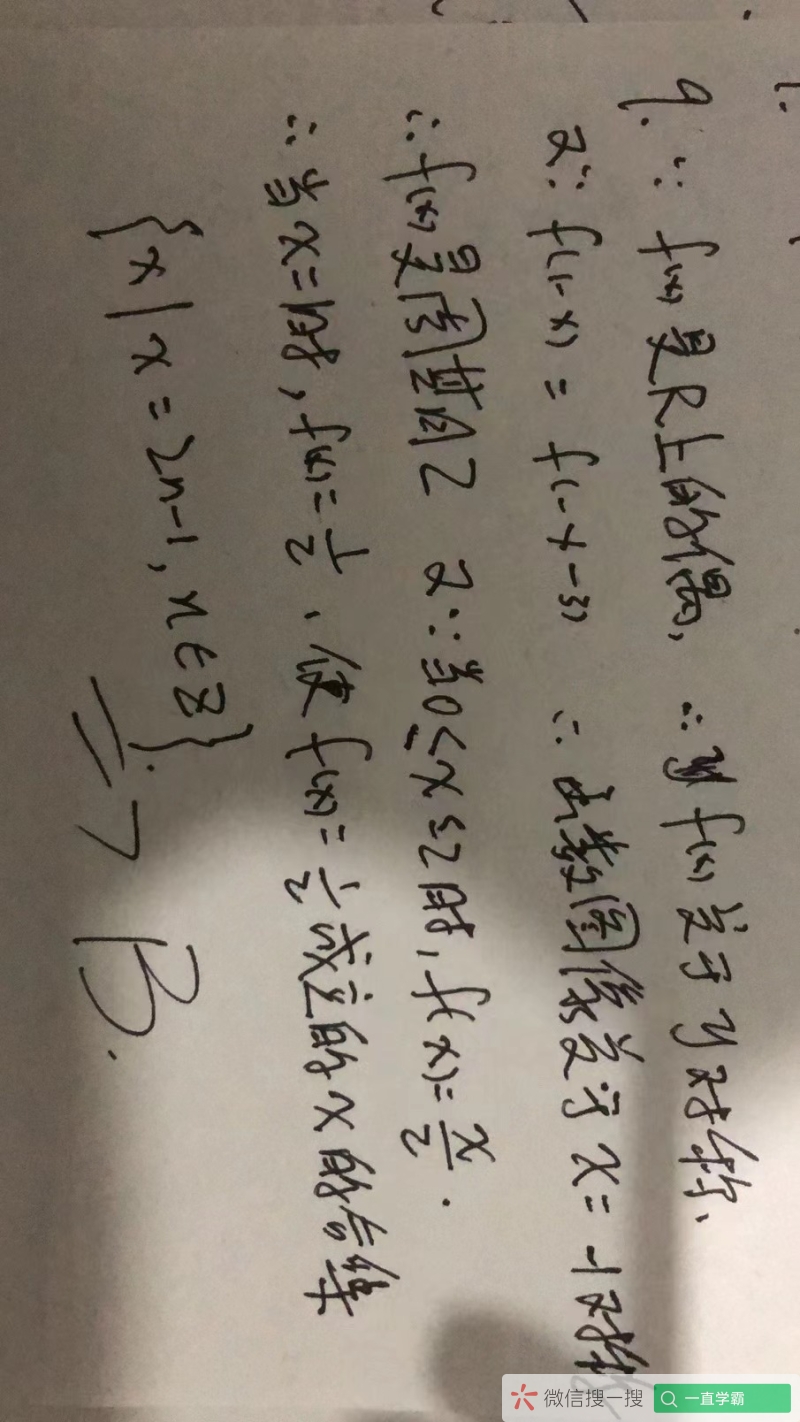 9. ∵ f(x)是R上的偶, ∴ f(x)关于y对称、
又∵ f(1-x) = f(-x-3) ∴ 函数图像关于x=-1对称
∴ f(x)是周期为2 又∵当0≤x≤2时, f(x)=x/2.
∴ 当x=1时, f(x)=1/2、使f(x)=1/2成立的x的合集
{x|x=2n-1, n∈Z}. B.
微信搜一搜 一直学霸